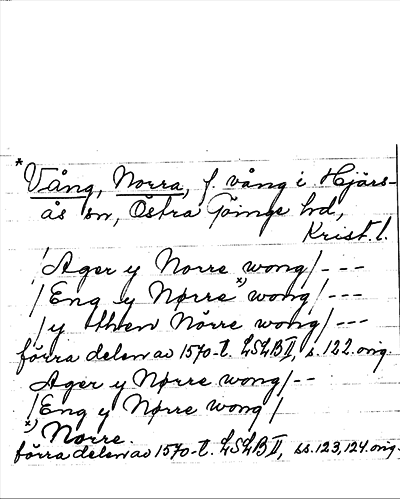 * Vång, Norra, f. vång i Hjärs-
ås sn, Östra Göinge hd,
Krist. l.
/Ager y Norre wong/ - - -
/Eng y Nørre x) wong/ - - -
/y then Nörre wong/ - - -
förra delen av 1570-t. LSLB II, s. 122 orig.
Ager y Nørre wong/ - -
/Eng y Nørre wong/
x) Norre.
förra delen av 1570-t. LSLB II, ss. 123, 124. orig.